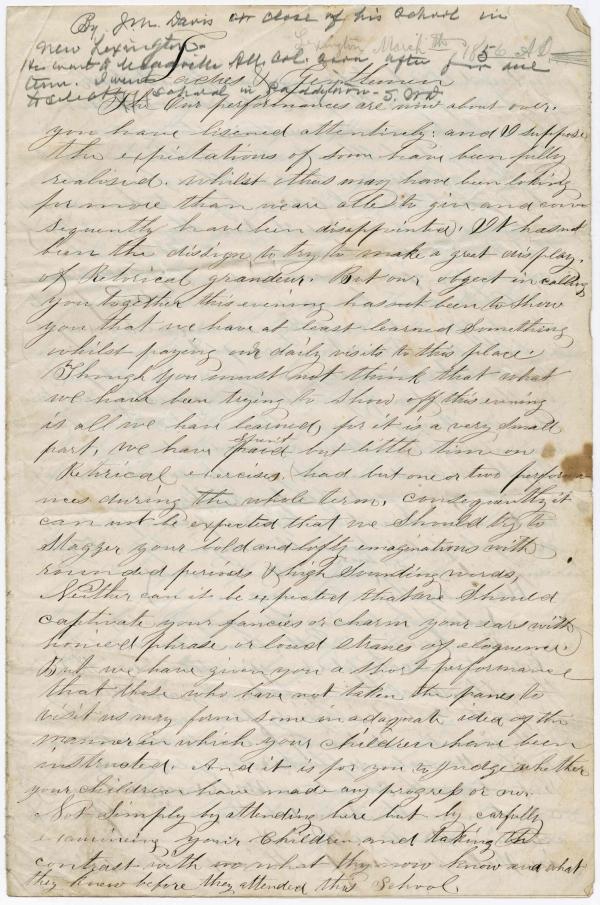 By J.M. Davis at close of his School in
New Lexington.
Lexington March th 1856 A.D.
He went to Att. Col. soon after
term. I went
Ladies & Gentlemen
to School in Paddytown - S. Ord
The Our performances are now about over.
you have listened attentively: and I suppose
the expectations of some have been fully
realised. whilst others may have been looking
for more than we are able to give and conse
sequently have been disappointed. It has not
been the dissign to try to make a great display.
of Retorical grandeur. But our obgect in calling
you together this evening has not been to show
you that we have at least learned something
whilst paying our daily visits to this place.
Though you must not think that what
we have been trying to show off this evening
is all we have learned, for it is a very small
part, we have spent paid but little time on
Retrical exercises, (had but one or two performa
nces during the whole term, consequently it
can not be expected that we should try to
stagger your bold and lofty emaginations with
rounded periods & high sounding words,
Neither can it be expected that we should
captivate your fancies or charm your ears with
honied phrase or loud stranes of eloquence.)
But we have given you a short performance
that those who have not taken the panes to
visit us may form some inadaquate idea of the
manner in which your children have been
instructed. And it is for you to Judge whether
your children have made any progress or no.
Not simply by attending here but by carfully
examining your Children and taking the
contrast with in what they now know and what
they knew before they attended this School.